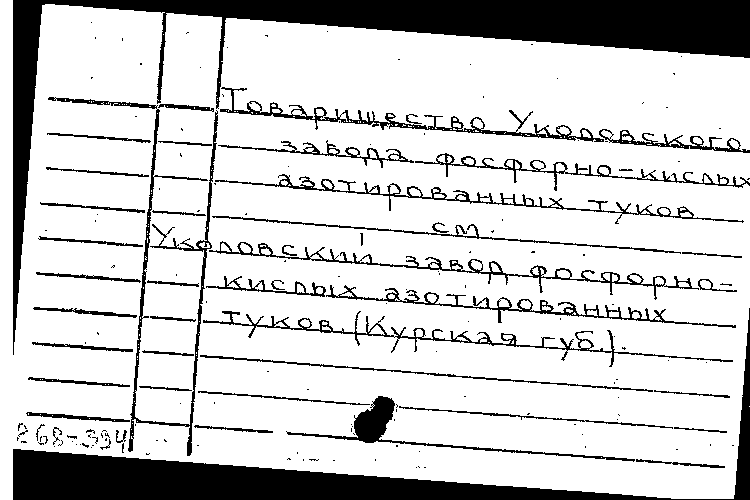 Товарищество Уколовского
завода фосфорно-кислых
азотированных туков
см.
Уколовский завод фосфорно-
кислых азотированных
туков. (Курская губ.).
268-394